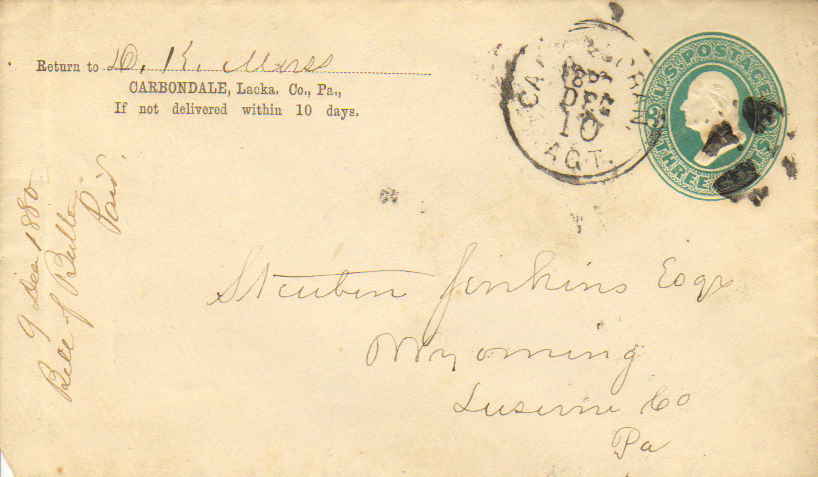 Return to D. K. Morss
CARBONDALE, Lacka. Co., Pa.,
If not delivered within 10 days.
DEC
10
AGT.
U.S. POSTAGE
THREE CENTS
9 Dec 1880
Bill of
Paid.
Steuben Jenkins Esqr
Wyoming
Luserne Co
Pa